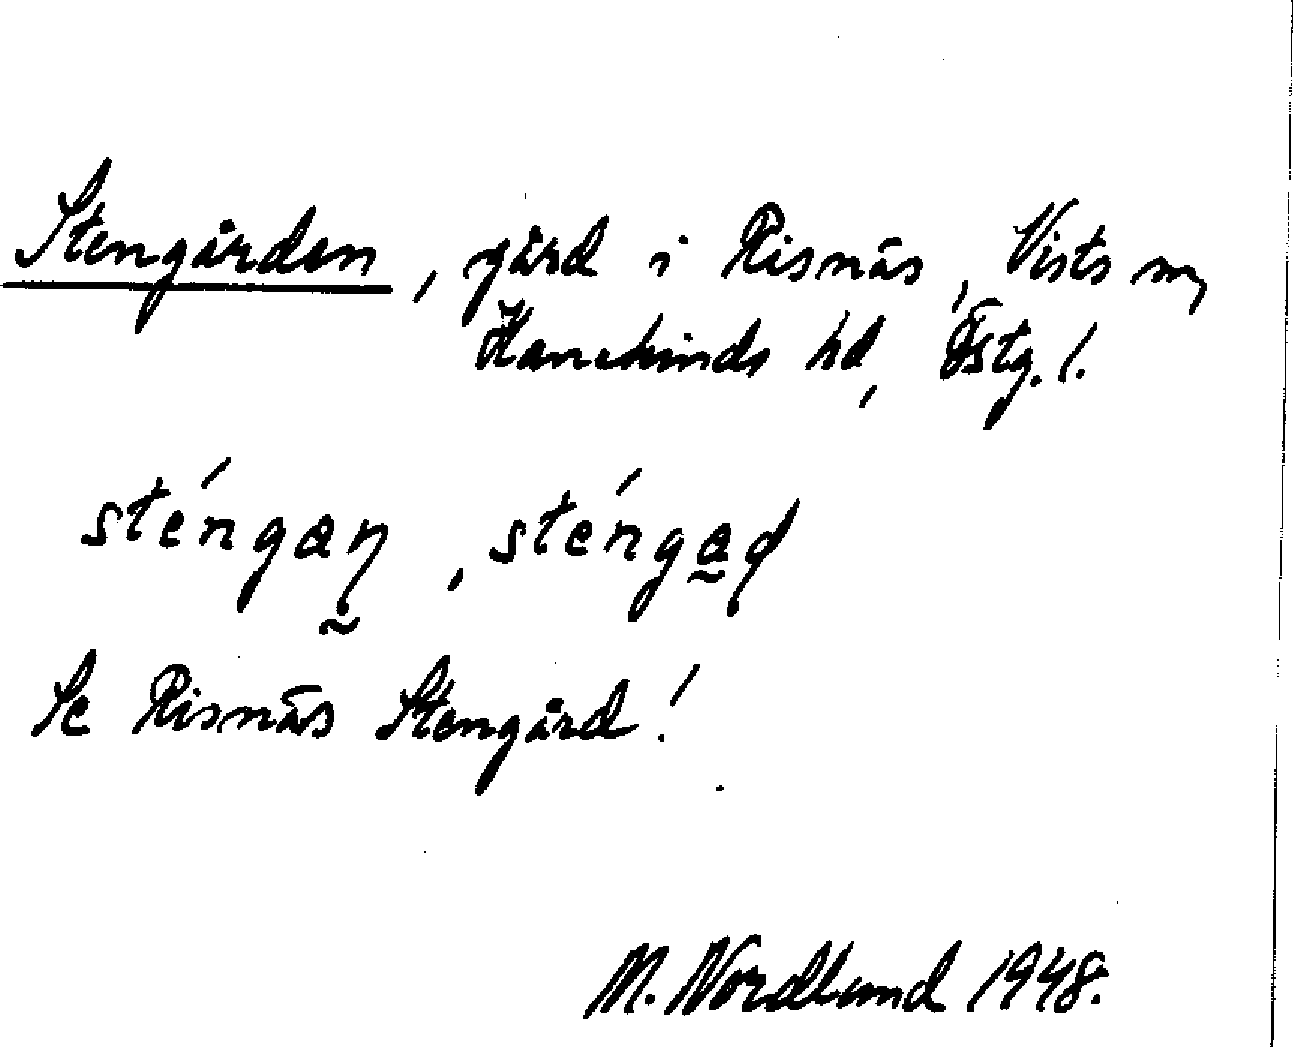 Stengården, gård i Risnäs, Vists sn,
Hanekinds hd, Östg. l.
sténgaɳ, sténgad
Se Risnäs Stengård!
M. Nordlund 1948.